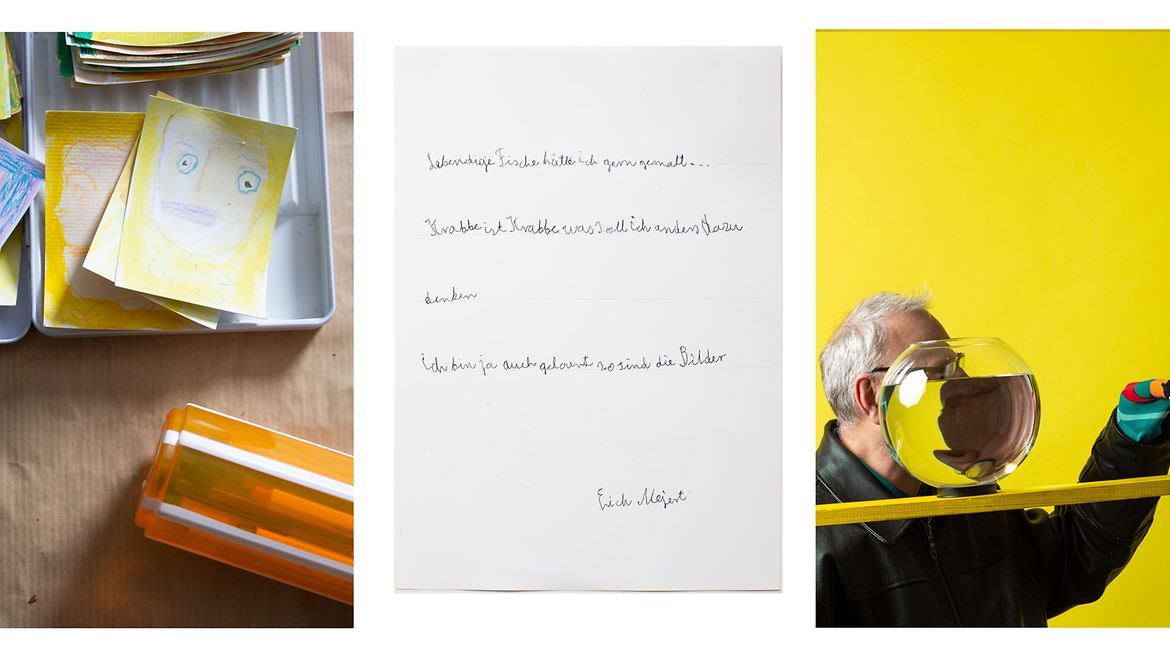 Lebendige Fische hätte ich gern gemalt...
Krabbe ist Krabbe was soll ich anders dazu
denken
ich bin ja auch gelount so sind die Bilder
Erich Mejert